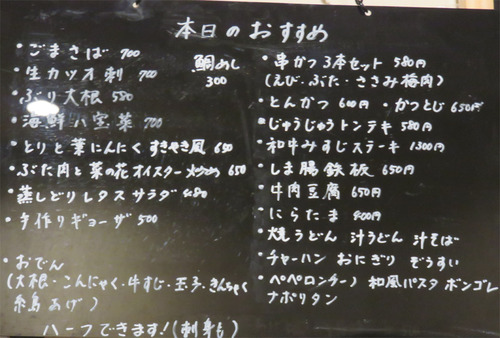 本日のおすすめ
・ごまさば 700
・生カツオ刺 700
鯛めし
300
・ぶり大根 580
・海鮮八宝菜 700
・とりと葉にんにく すきやき風 650
・ぶた肉と菜の花オイスター炒め 650
・蒸しどりレタスサラダ 480
・手作りギョーザ 500
・おでん
(大根・こんにゃく・牛すじ・玉子・きんちゃく
糸島あげ)
ハーフできます!(刺身も)
・串かつ3本セット 580円
(えび・ぶた・ささみ梅肉)
・とんかつ 600円 ・かつとじ 650円
・じゅうじゅうトンテキ 580円
・和牛みすじステーキ 1300円
・しま腸鉄板 650円
・牛肉豆腐 650円
・にらたま 400円
・焼うどん 汁うどん 汁そば
・チャーハン おにぎり ぞうすい
・ペペロンチーノ 和風パスタ ボンゴレ
ナポリタン